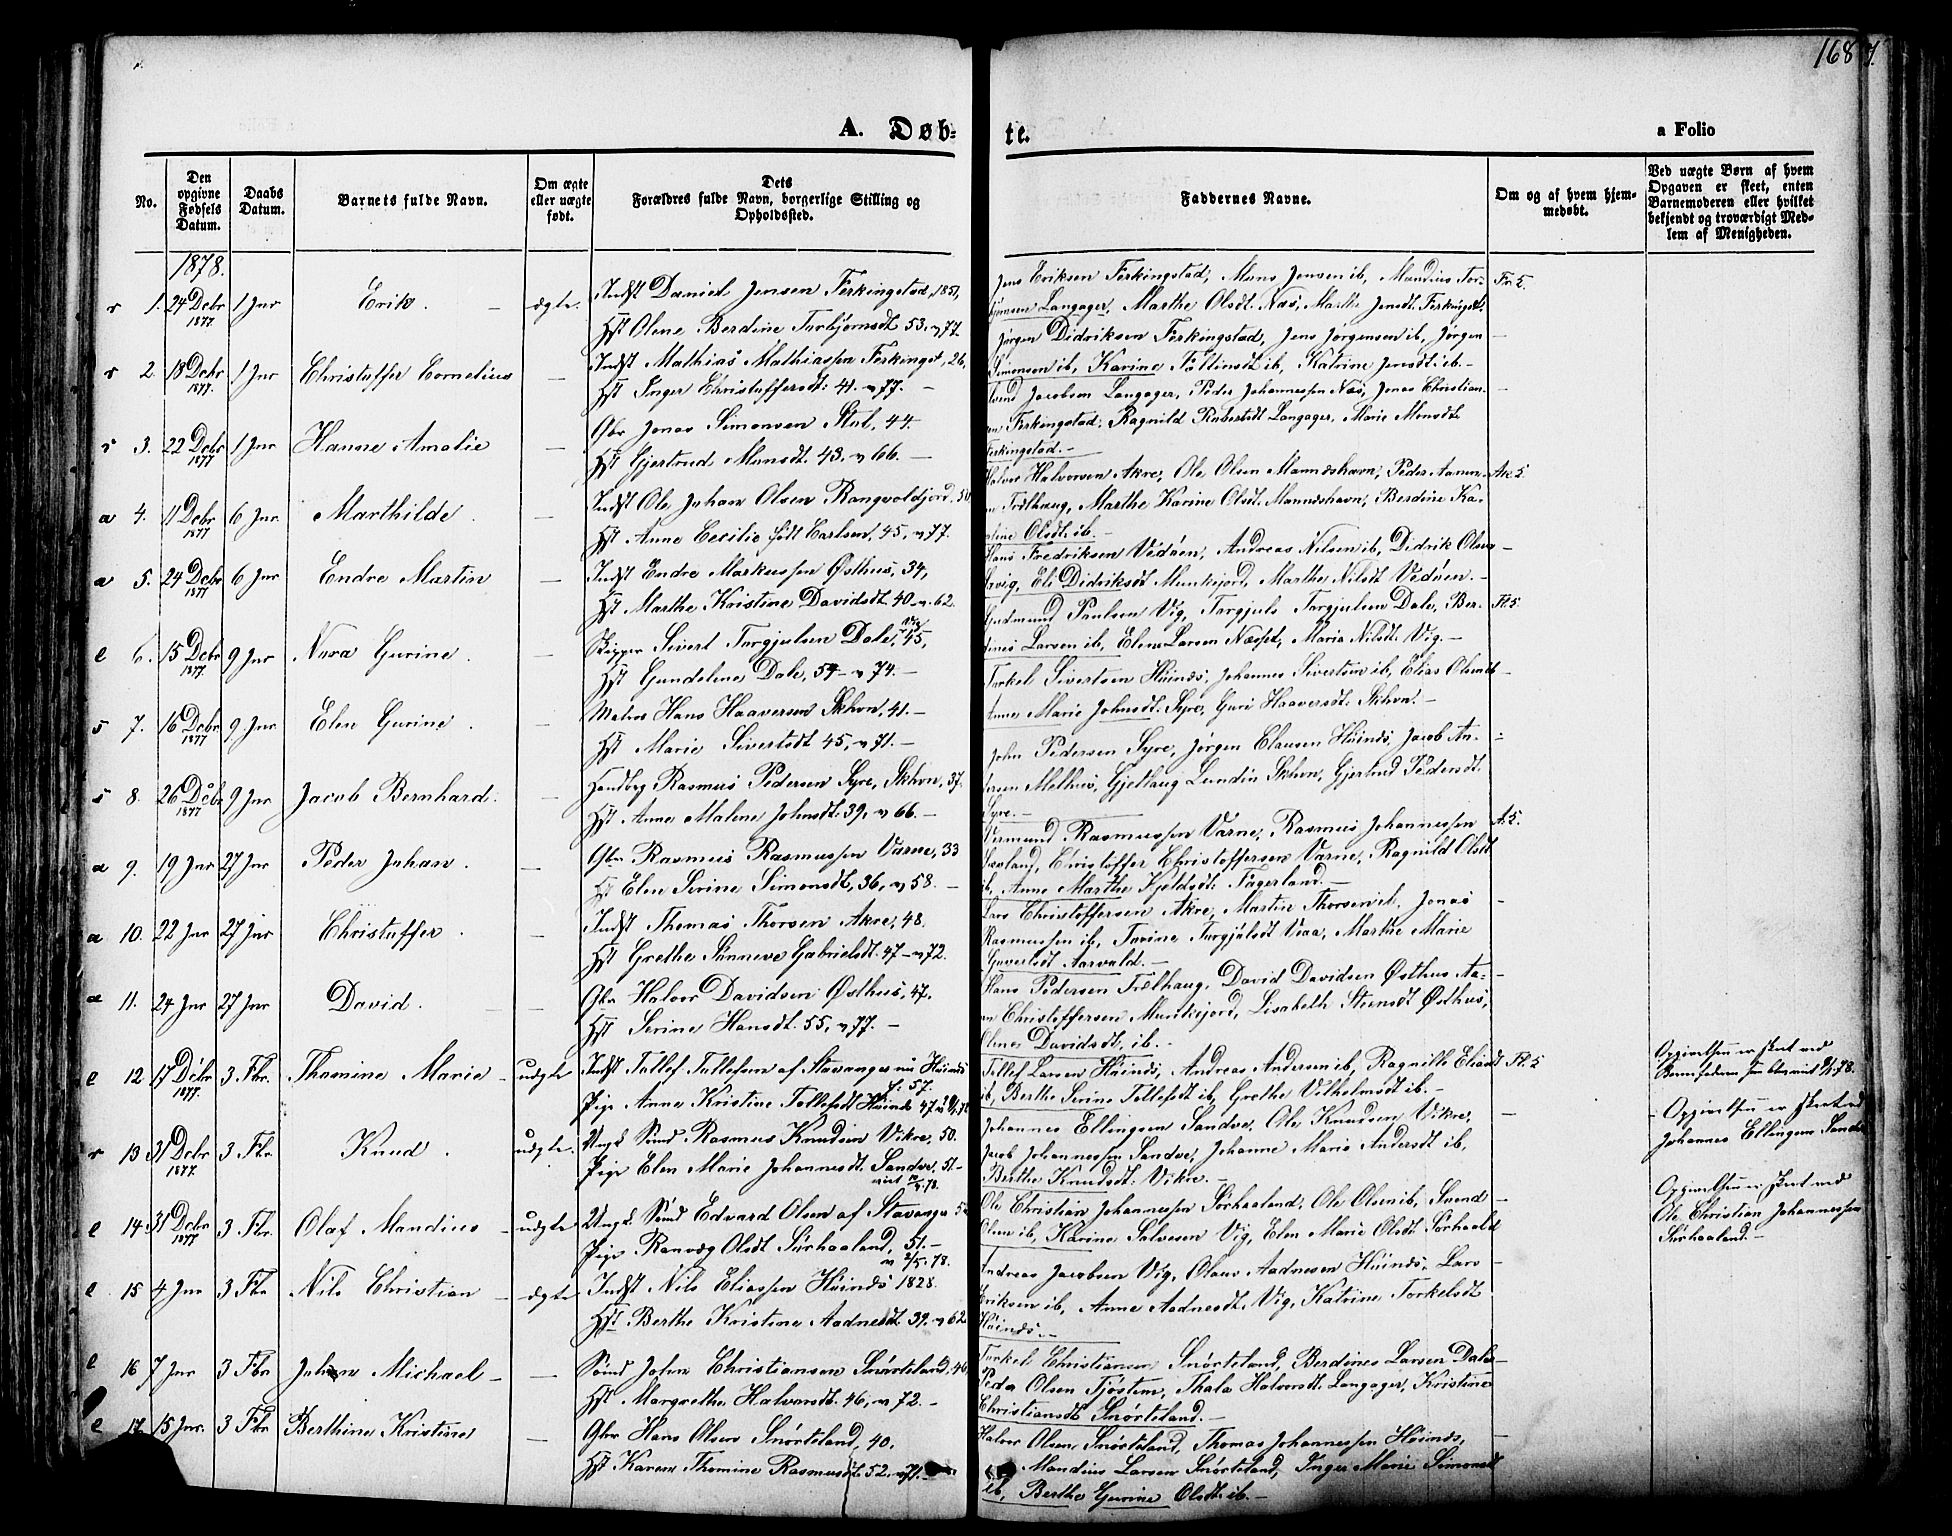 168
A. Døb-
te.
a Folio
No.
Den opgivne Fødsels Datum.
Daabs Datum.
Barnets fulde Navn.
Om ægte eller uægte født.
Dets Forældres fulde Navn, borgerlige Stilling og Opholdssted.
Faddernes Navne.
Om og af hvem hjemmedøbt.
Ved uægte Børn af hvem Opgaven er skeet, enten Barnemoderen eller hvilket bekjendt og troværdigt Medlem af Menigheden.
1878.
r 1. 24 Debr 1877 1 Jnr Erik. ægte. Indst Daniel Jensen Ferkingstad, 1851,
Hst Olene Berdine Torbjørnsdt 53. v 77.
Jens Eriksen Ferkingstad, Mons Jensen ib, Mandius Tor-
bjørnsen Langager, Marthe Olsdt. Næs, Marthe Jensdt. Ferkingst.
r 2. 18 Debr 1877. 1 Jnr Christoffer Cornelius — Indst Mathias Mathiassen Ferkingst, 26,
Hst Inger Christoffersdt: 41. v 77. —
Jørgen Didriksen Ferkingstad, Jens Jørgensen ib, Jørgen
Simonsen ib, Karine Foltinsdt ib, Katrine Jensdt: ib. —
r 3. 22 Debr 1877 1 Jnr Hanne Amalie — Gbr Jonas Simonsen Stol, 44.
Hst Gjertrud Monsdt. 43. v 66. —
Svend Jacobsen Langager, Peder Johannessen Næs, Jonas Christian-
sen Ferkingstad, Ragnild Langager, Marie Monsdt.
Ferkingstad. —
a 4. 11 Debr 1877 6 Jnr Marthilde. — Indst Ole Johan Olsen Rangvoldjord, 50
Hst Anne Cecilie født Carlsen, 45, v 77.
Halvor Halvorsen Akre, Ole Olsen Mannshavn, Peder Aamun-
Trælhaug, Marthe Karine Olsdt. Mannshavn, Berdine Ka-
trine Olsdt. ib. —
a 5. 24 Debr 1877 6 Jnr Endre Martin — Indst Endre Markussen Østhus, 34,
Hst Marthe Kristine Davidsdt. 40 v. 62.
Hans Fredriksen Vedøen, Andreas Nilsen ib, Didrik Olsen
Eli Didriksdt Munkejord, Marthe Nilsdt Vedøen. —
e 6. 15 Debr 1877. 9 Jnr Nora Gurine. Skipper Sivert Torgjulsen Dale, Vig 45,
Hst Gundeline Dale, 54 — v 74. —
Gudmund Paulsen Vig, Torgjuls Torgjulsen Dale, Ber-
dines Larsen ib, Elene Larsen Næsset, Maria Nilsdt. Vig. —
s 7. 16 Debr 1877 9 Jnr Elen Gurine. — Matros Hans Haaversen Skhvn, 41. —
Hst Marie Sivertsdt 45, v 71. —
Torkel Sivertsen Høinds, Johannes Sivertsen ib, Elias Olsen ib
Anne Marie Johnsdt. Syre, Guri Haaversdt. Skhvn. —
s 8. 26 Debr 1877 9 Jnr Jacob Bernhard. — Handbg Rasmus Pedersen Syre, Skhvn, 37.
Hst Anne Malene Johnsdt. 39, v 66. —
John Pedersen Syre, Jørgen Clausen Høinds, Jacob An-
dersen Melhus, Gjetlaug Lundin Skhvn, Gjertrud Pedersdt.
Syre. —
a 9. 19 Jnr 27 Jnr Peder Johan. — Gbr Rasmus Rasmussen Varne, 33
Hst Elen Serine Simonsdt, 36, v 58. —
Vermund Rasmussen Varne, Rasmus Johannessen
Christoffer Christoffersen Varne, Ragnild Olsdt
ib, Anne Marthe Kjeldsdt. Fagerland. —
a 10. 22 Jnr 27 Jnr Christoffer. — Indst Thomas Thorsen Akre, 48.
Hst Grethe Sønneve Gabrielsdt. 47 — v 72.
Lars Christoffersen Akre, Martin Thorsen ib. Jonas
Rasmussen ib, Torine Torgjulsdt Veaa, Marthe Marie
Govertsdt Aarvald. —
a 11. 24 Jnr 27 Jnr David. — Gbr Halvor Davidsen Østhus, 47.
Hst Serine Hansdt. 55, v 77. —
Hans Pedersen Trælhaug, David Davidsen Østhus Aa-
Christoffersen Munkejord, Lisabeth Steensdt Østhus,
Olene Davidsdt, ib. —
e 12 17 Debr 1877. 3 Fbr. Thomine Marie — uægte Indst Tollef Tollefsen af Stavanger nu Høinds f: 57.
Pige Anne Kristine Tollefsdt Høinds 47
Tollef Larsen Høinds, Andreas Andersen ib, Ragnilde Eliasdt
ib, Berthe Serine Tollefsdt ib, Grethe Vilhelmsdt ib. —
Opgivelsen er skeet ved
Barnefaderen
r 13 31 Debr 1877. 3 Fbr Knud. uægte. Ungk Sømd Rasmus Knudsen Vikre, 50.
Pige Elen Marie Johannesdt. Sandve, 51. —
Johannes Ellingsen Sandve, Ole Knudsen Vikre,
Jacob Johannessen Sandve, Johanne Marie Andersdt ib,
Berthe Knudsdt. Vikre. —
Opgivelsen er skeet ved
Johannes Ellingsen Sandve
e 14 31 Debr 1877 3 Fbr. Olaf Mandius — uægte Ungk. Sømd Edvard Olsen af Stavanger 52
Pige Ranveg Olsdt Sørhaaland, 51. —
v 2/5. 78.
Ole Christian Johannessen Sørhaaland, Ole Olsen ib, Svend
Olsen ib, Karine Salvesen Vig, Elen Marie Olsdt. Sørhaald
Opgivelsen er skeet ved
Ole Christian Johannessen
Sørhaaland. —
e 15 4 Jnr 3 Fbr Nils Christian — ægte Indst Nils Eliassen Høinds 1828.
Hst Berthe Kristine Aadnesdt. 39. v 62
Andreas Jacobsen Vig, Olaus Aadnesen Høinds, Lars
Eriksen ib, Anne Aadnesdt. Vig, Katrine Torkelsdt
Høinds. —
e 16 7 Jnr 3 Fbr Johan Michael — — Sømd John Christiansen Snørteland, 46,
Hst Margrethe Halvorsdt. 46, v 72. —
Torkel Christiansen Snørteland, Berdines Larsen Dale
Peda Olsen Tjøstem, Thala Halvorsdt. Langager, Kristine
Christiansdt Snørteland. —
e 17. 15 Jnr. 3 Fbr Berthine Kristine — Gbr Hans Olsen Snørteland, 40.
Hst Karen Thomine Rasmusdt. 52. v 71. —
Halvor Olsen Snørteland, Thomas Johannessen Høinds,
Mandius Larsen Snørteland, Inger Marie Simonsdt
ib, Berthe Gurine Olsdt. ib. —